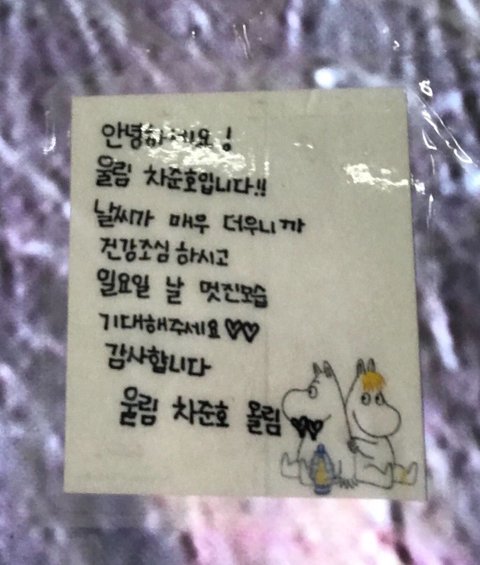 안녕하세요!
울림 차준호입니다!!
날씨가 매우 더우니까
건강조심 하시고
일요일 날 멋진모습
기대해주세요♡♡
감사합니다
울림 차준호 올림 ♡♡